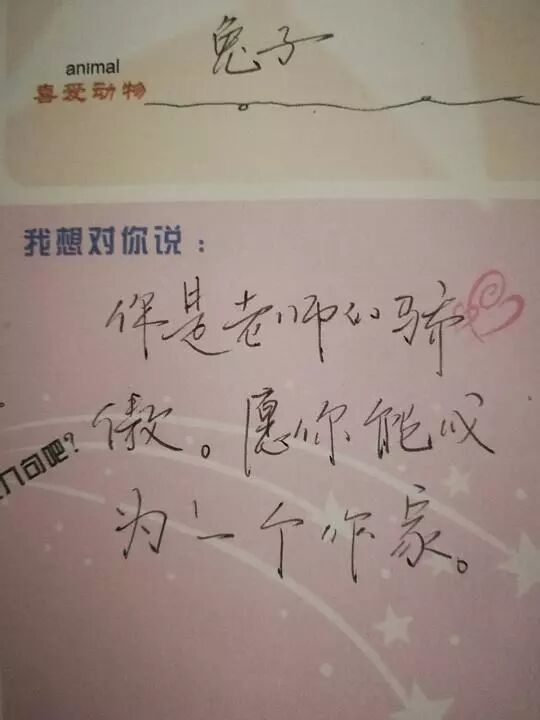 兔子
animal
喜爱动物
我想对你说：
你是老师的骄
傲。愿你能成
为一个作家。
几句吧？